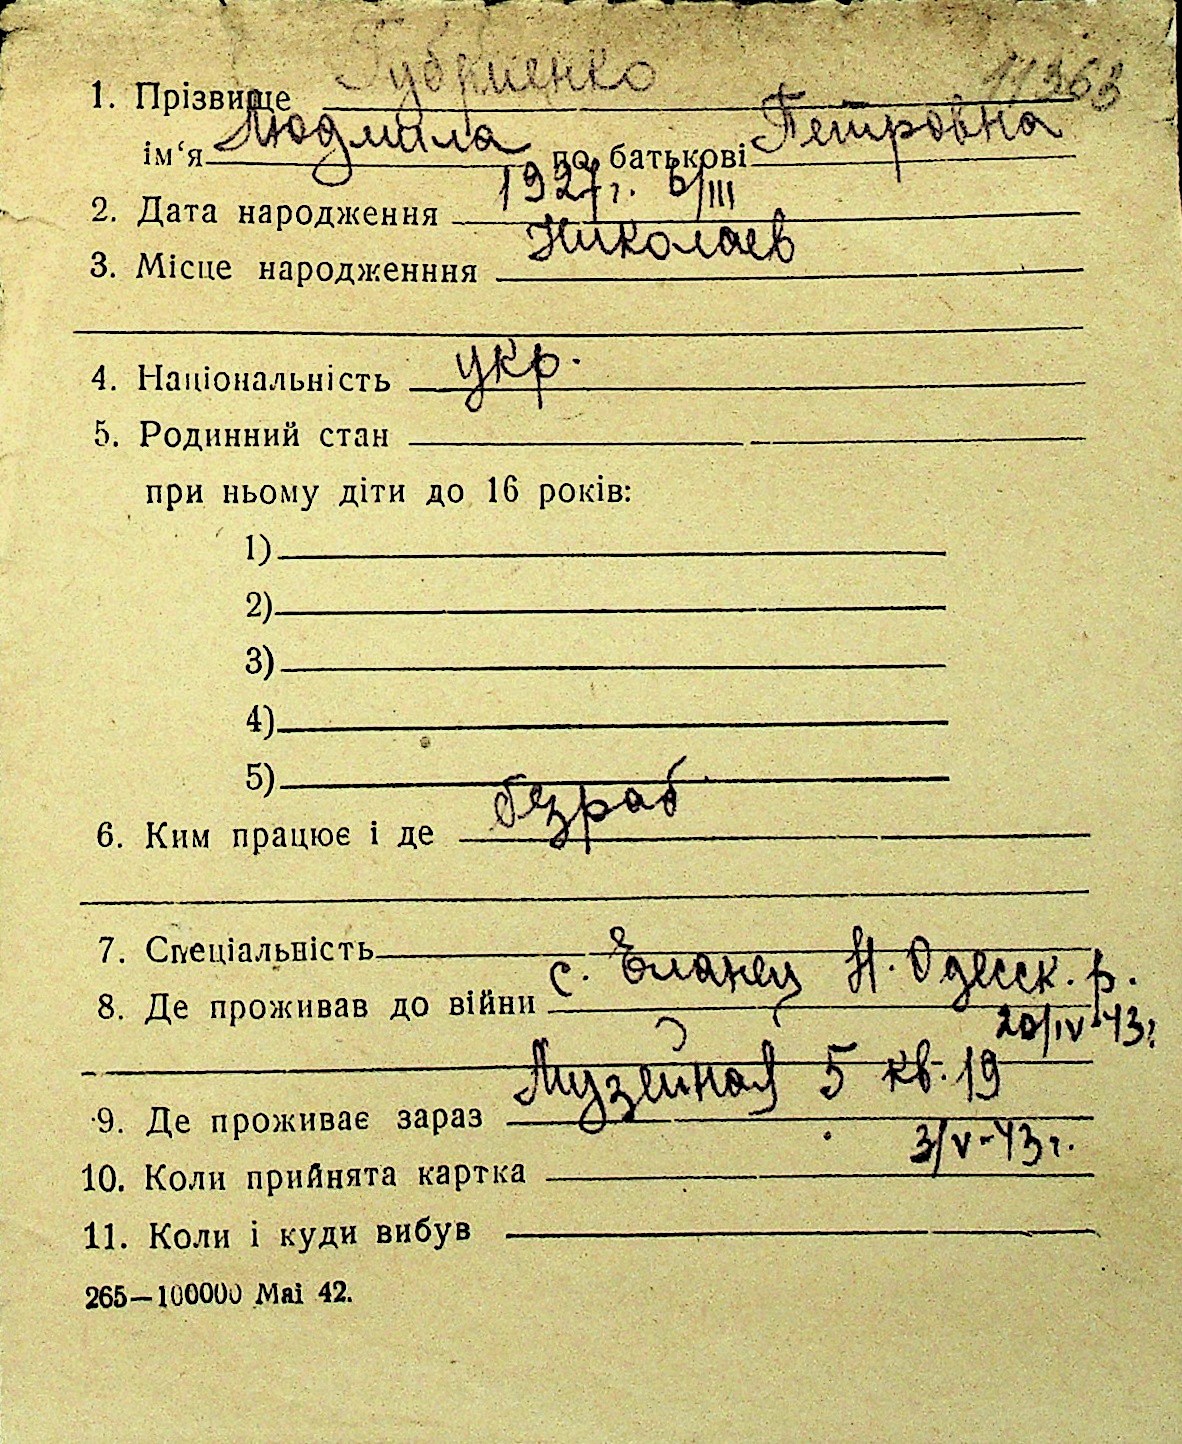 11363
1. Прізвище
ім‘я Людмила по батькові Петровна
2. Дата народження 1927 г. 6/III
3. Місце народженння Николаев
4. Національність укр.
5. Родинний стан
при ньому діти до 16 років:
1)
2)
3)
4)
5)
6. Ким працює і де безраб
7. Спеціальність
8. Де проживав до війни с. Еланец Н. Одесск. р.
20/IV-43г.
9. Де проживає зараз Музейная 5 кв. 19
10. Коли прийнята картка 3/V-43г.
11. Коли і куди вибув
265—100000 Mai 42.